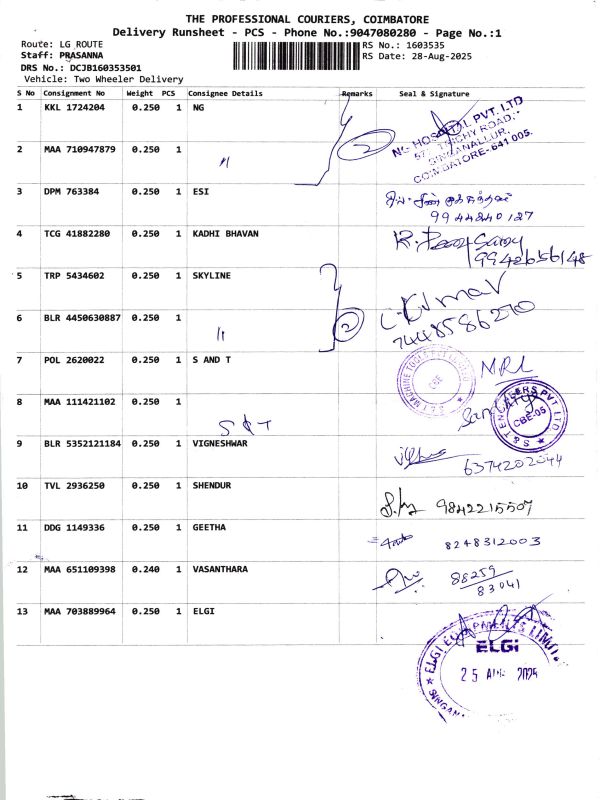 THE PROFESSIONAL COURIERS, COIMBATORE
Delivery Runsheet - PCS - Phone No.:9047080280 - Page No.:1
Route: LG ROUTE RS No.: 1603535
Staff: PRASANNA RS Date: 28-Aug-2025
DRS No.: DCJB160353501
Vehicle: Two Wheeler Delivery
S No Consignment No Weight PCS Consignee Details Remarks Seal & Signature
1 KKL 1724204 0.250 1 NG
NG HOSPITAL PVT. LTD
577, TRICHY ROAD,
SINGANALLUR,
COIMBATORE-641 005.
2 MAA 710947879 0.250 1 " 2
3 DPM 763384 0.250 1 ESI
9944840127
4 TCG 41882280 0.250 1 KADHI BHAVAN
9942656148
5 TRP 5434602 0.250 1 SKYLINE
C. Kumar
6 BLR 4450630887 0.250 1 " 2
7448586270
7 POL 2620022 0.250 1 S AND T
S & T MACHINE TOOLS PVT LTD
CBE
MRL
8 MAA 111421102 0.250 1 S & T
CBE-05
9 BLR 5352121184 0.250 1 VIGNESHWAR
6374202044
10 TVL 2936250 0.250 1 SHENDUR
9842215507
11 DDG 1149336 0.250 1 GEETHA
8248312003
12 MAA 651109398 0.240 1 VASANTHARA
88259
83041
13 MAA 703889964 0.250 1 ELGI
ELGi
25 AUG 2025